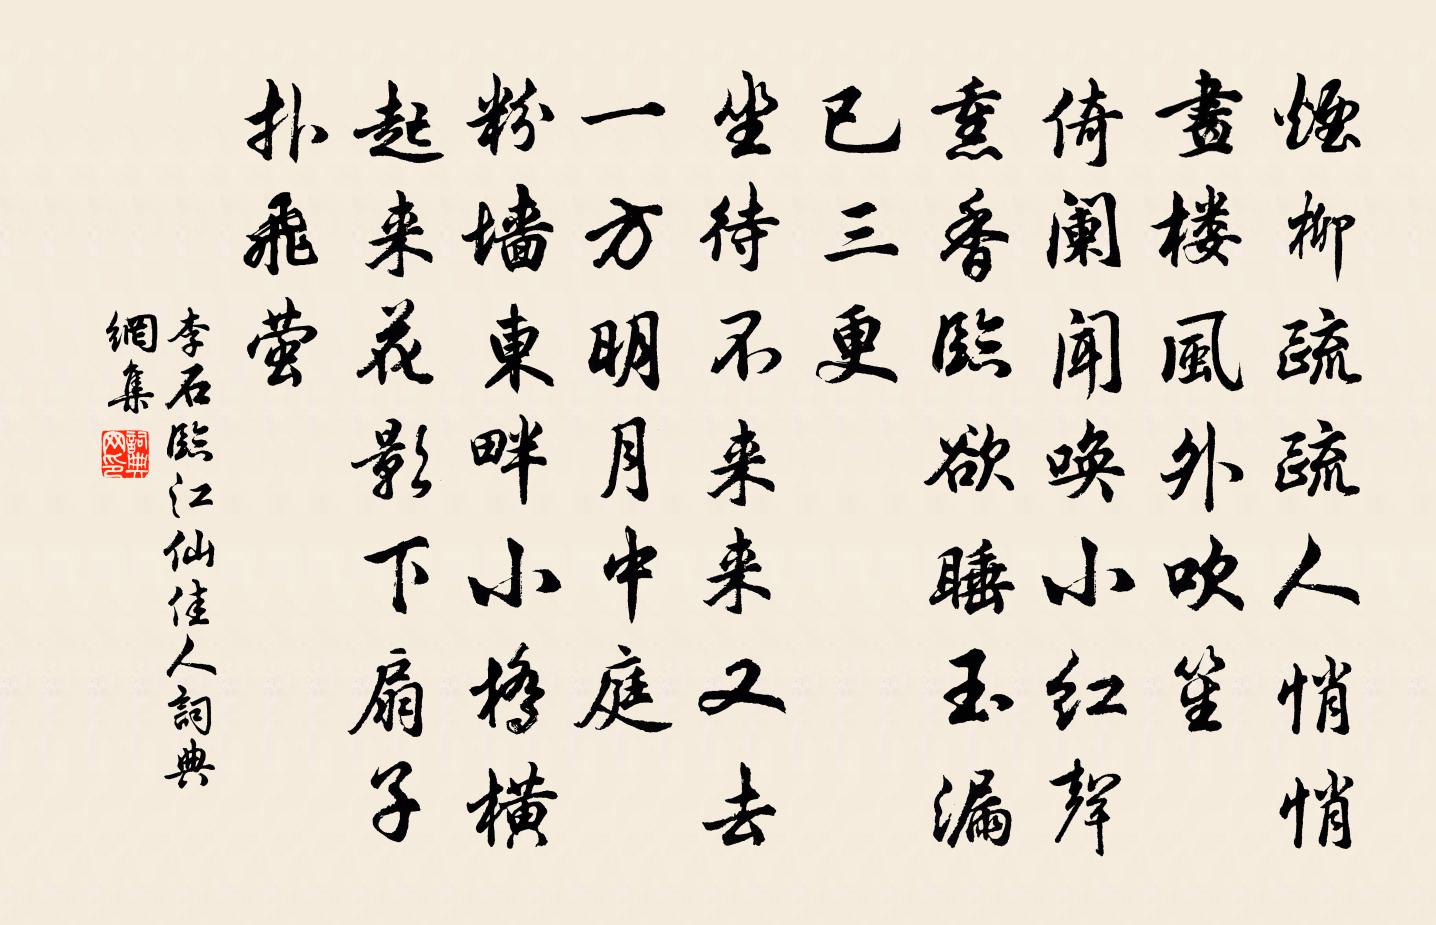 煙柳疏疏人悄悄
畫楼風外吹笙
倚阑闻唤小红聲
熏香臨欲睡玉漏
已三更
坐待不来来又去
一方明月中庭
粉墙東畔小橋横
起来花影下扇子
扑飛萤
李石臨江仙佳人詞典
網集
詞典
网印